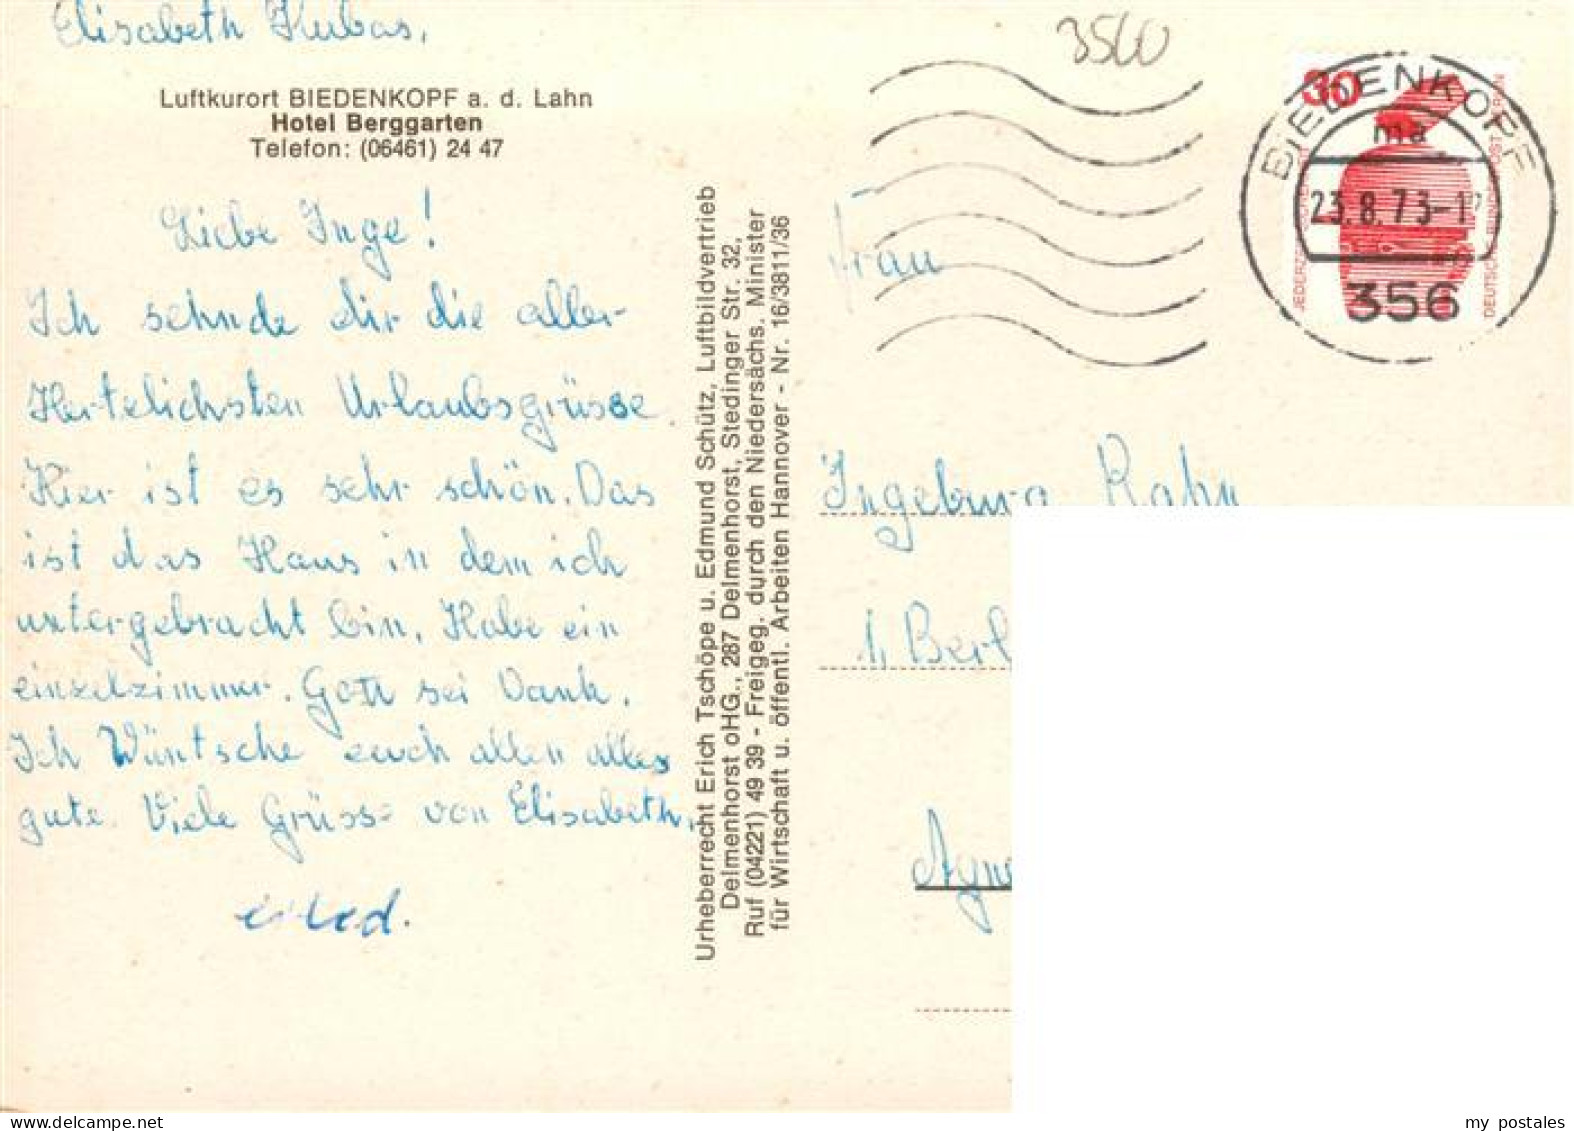 Elisabeth Kubas,
Luftkurort BIEDENKOPF a. d. Lahn
Hotel Berggarten
Telefon: (06461) 24 47
Liebe Inge!
Ich sehnde dir die aller-
Hertzlichsten Urlaubsgrüsse.
Hier ist es sehr schön. Das
ist das Haus in dem ich
untergebracht bin. Habe ein
einzelzimmer. Gott sei Dank.
Ich Wüntsche euch allen alles
gute. Viele Grüsse von Elisabeth.
Urheberrecht Erich Tschöpe u. Edmund Schütz, Luftbildvertrieb
Delmenhorst oHG., 287 Delmenhorst, Stedinger Str. 32,
Ruf (04221) 49 39 - Freigeg. durch den Niedersächs. Minister
für Wirtschaft u. öffentl. Arbeiten Hannover - Nr. 16/3811/36
3560
30
BIEDENKOPF
ma
23.8.73-17
356
Frau
Ingeburg Rahn
1, Berl
my postales